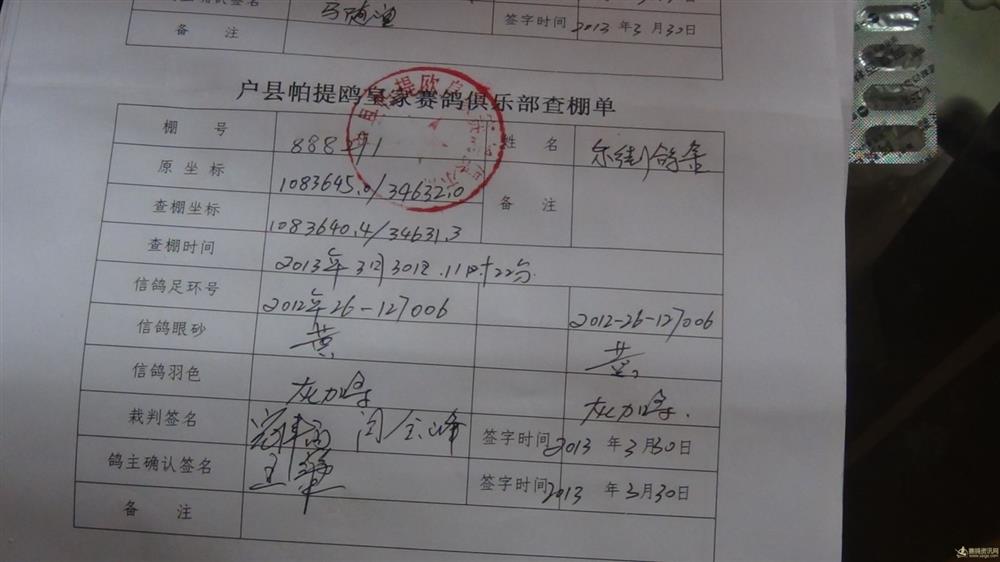 签字时间 2013 年 3 月 30日
备 注
户县帕提鸥皇家赛鸽俱乐部查棚单
棚 号 888291 姓 名
原 坐 标 1083645.0/34632.0 备 注
查棚坐标 1083640.4/34631.3
查棚时间 2013年3月30日.11时22分.
信鸽足环号 2012年26-127006 2012-26-127006
信鸽眼砂 黄 黄
信鸽羽色 灰 灰
裁判签名 闫 峰 签字时间 2013 年 3月30日
鸽主确认签名 王 签字时间 2013 年3月30日
备 注
赛鸽资讯网